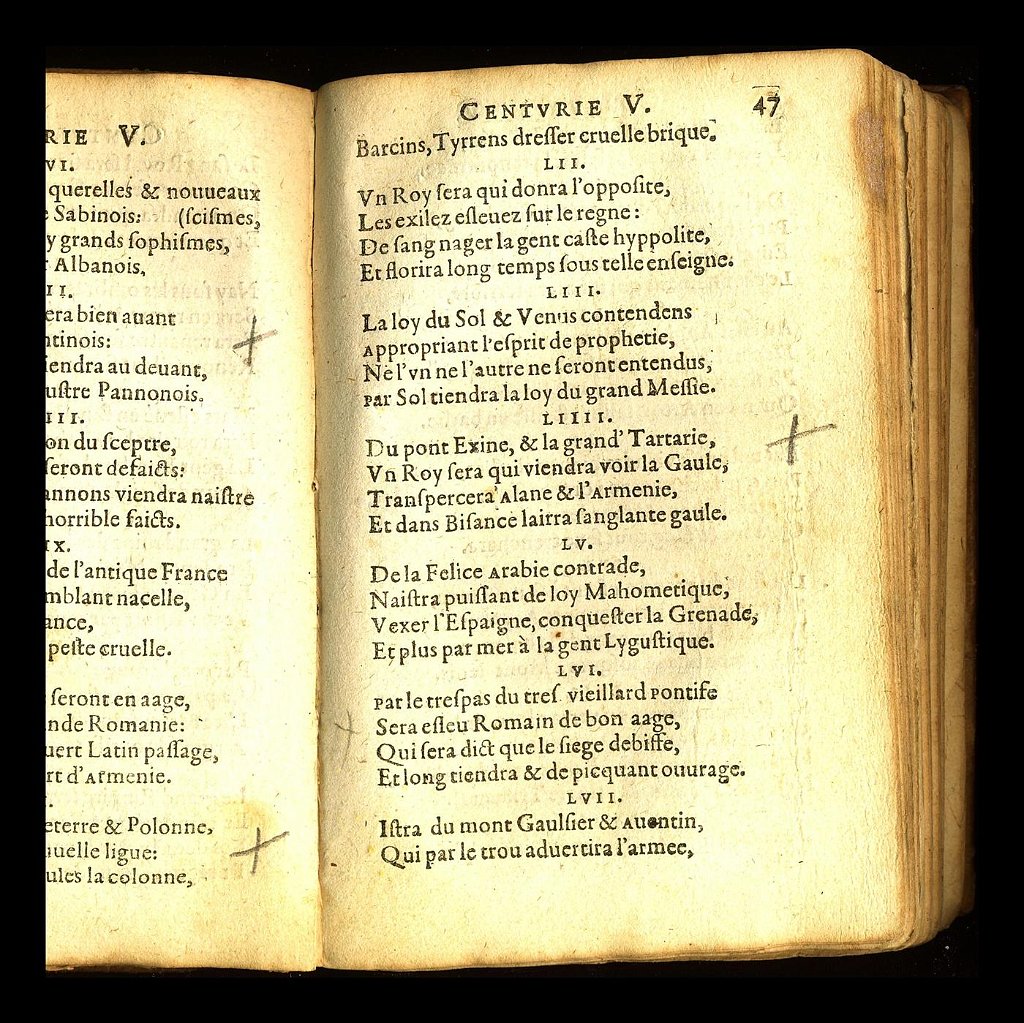 RIE V.
VI.
querelles & nouueaux
Sabinois: (ſciſmes,
y grands ſophiſmes,
Albanois,
II.
era bien auant
ntinois:
iendra au deuant,
uſtre Pannonois.
III.
on du ſceptre,
ſeront defaicts:
annons viendra naiſtre
horrible faicts.
IX.
de l'antique France
mblant nacelle,
ance,
peſte cruelle.
ſeront en aage,
nde Romanie:
uert Latin paſſage,
rt d'Armenie.
eterre & Polonne,
uuelle ligue:
ules la colonne,
CENTVRIE V. 47
Barcins, Tyrrens dreſſer cruelle brique.
LII.
Vn Roy ſera qui donra l'oppoſite,
Les exilez eſleuez ſur le regne:
De ſang nager la gent caſte hyppolite,
Et florira long temps ſous telle enſeigne.
LIII.
La loy du Sol & Venus contendens
Appropriant l'eſprit de prophetie,
Ne l'vn ne l'autre ne ſeront entendus,
Par Sol tiendra la loy du grand Meſſie.
LIIII.
Du pont Exine, & la grand' Tartarie,
Vn Roy ſera qui viendra voir la Gaule,
Tranſpercera Alane & l'Armenie,
Et dans Biſance lairra ſanglante gaule.
LV.
De la Felice Arabie contrade,
Naiſtra puiſſant de loy Mahometique,
Vexer l'Eſpaigne, conqueſter la Grenade,
Et plus par mer à la gent Lyguſtique.
LVI.
Par le treſpas du treſ vieillard Pontife
Sera eſleu Romain de bon aage,
Qui ſera dict que le ſiege debiffe,
Et long tiendra & de picquant ouurage.
LVII.
Iſtra du mont Gaulſier & Auentin,
Qui par le trou aduertira l'armee,